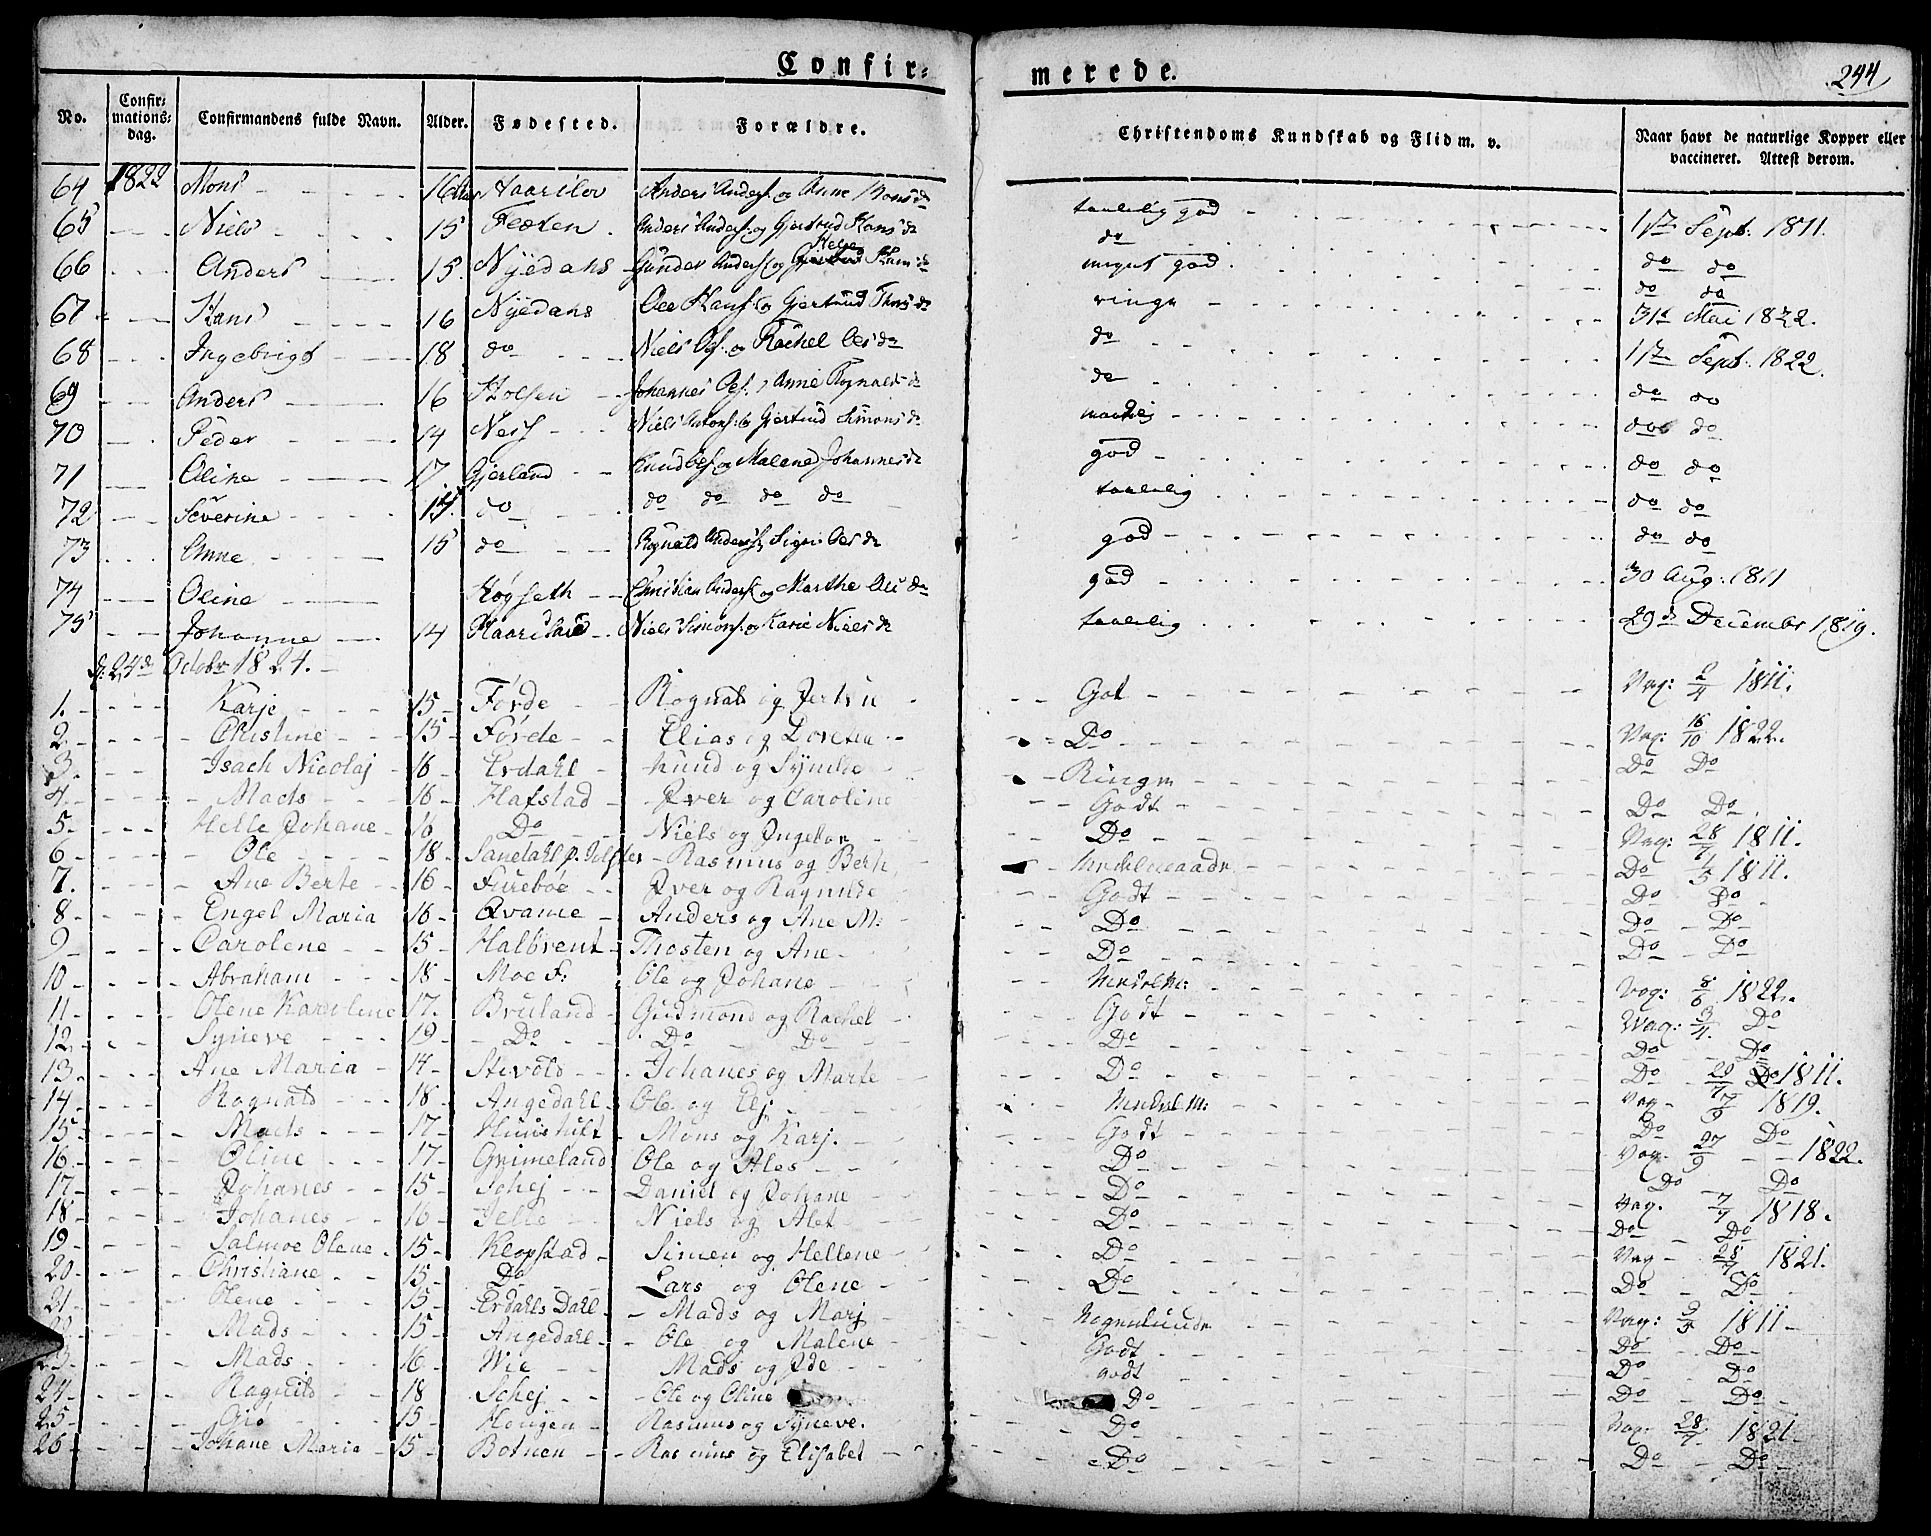 Confir=
merede.
244
No. Confirmations-dag. Confirmandens fulde Navn. Alder. Fødested. Forældre. Christendoms Kundskab og Flid m. v. Naar havt de naturlige Kopper eller vaccineret. Attest derom.
64 1822 Mons 16 Anders Anders: og Anne Mons dr taalelig god 17 Sept. 1811.
65 Niels 15 Anders Anders: og Gjertrud Hans dr do do do
66 Anders 15 Nyedahs Gunder Anders: og Hans dr meget god do do
67 Hans 16 Nyedahs Ole Hans: og Gjertrud Thors dr ringe 31t Mai 1822.
68 Ingebrigt 18 do Niels Ols: og Rachel Ols dr do 17 Sept. 1822.
69 Anders 16 Holsen Johannes Ols: Anne Rognalds dr do do do
70 Peder 14 Ness Niels Antons: og Gjertrud Simons dr do do
71 Oline 17 Gjerland Knud Ols: og Malene Johannes dr god do do
72 Severine 14 do do do do do taalelig do do
73 Anne 15 do Rognald Anders: Signi Ols dr god do do
74 Oline Høgseth Christian Anders: og Marthe Ols dr god 30 Aug: 1811
75 Johanne 14 Niels Simons: og Karie Niels dr taalelig 29de December 1819.
d: 24de Octobr 1824.
1. Karje 15 Førde Rognald og Got Vag: 2/4 1811.
2 Christine 15 Førde Elias og Dortea Do Vag: 16/10 1822.
3. Isach Nicolaj 16 Erdahl og Synneve Ringe Do Do
4. Mads 16 Hafstad Iver og Caroline Godt Do Do
5. Helle Johane 16 Do Niels og Ingebor Do Vag: 28/7 1811.
6 Ole 18 Sanedahl p. Jolster Rasmus og Berth Do 1/5 1811.
7. Ane Berte 16 Furebøe Iver og Ragnilde Godt Do Do
8 Engel Maria 16 Qvame Anders og Ane M: Do Do Do
9 Carolene 15 Halbrent Thosten og Ane Do Do Do
10 Abraham 18 Moe F: Ole og Johane Vag: 8/6 1822.
11 Olene Karolene 17. Bruland Gudmond og Rachel Godt Vag: 3/4. Do
12 Syneve 19 Do Do Do Do Do Do
13 Ane Maria 14 Stevold Johanes og Marte Do Do 1811.
14 Rognald 18 Angedahl Ole og Elj Vag 7/9 1819.
15 Mads 17 Mons og Karj. Godt Do Do
16 Oline 17 Grimeland Ole og Ales Do Vag. 27/9 1822.
17 Johanes 15 Schej Daniel og Johane Do Do Do
18 Johanes 16 Jelle Niels og Alet Do Vag. 7/7 1818.
19 Salmoe Olene 15 Klopstad Simen og Hellene Do Do Do
20 Christiane 15 Do Lars og Olene Do Vag 28/7 1821.
21 Olene 15 Erdahls Dahl Mads og Marj Do Do
22 Mads 15 Angedahl Ole og Malene Godt Vag: 3/5 1811
23 Mads 16 Wie Mads og Ide godt Do Do
24 Ragnild 18 Schej Ole og Oline Do Do Do
25 Giø 15 Hougen Rasmus og Syneve. Do Vag. 28/7 1821
26 Johane Maria 15 Botnen Rasmus og Elisabet Do Do Do